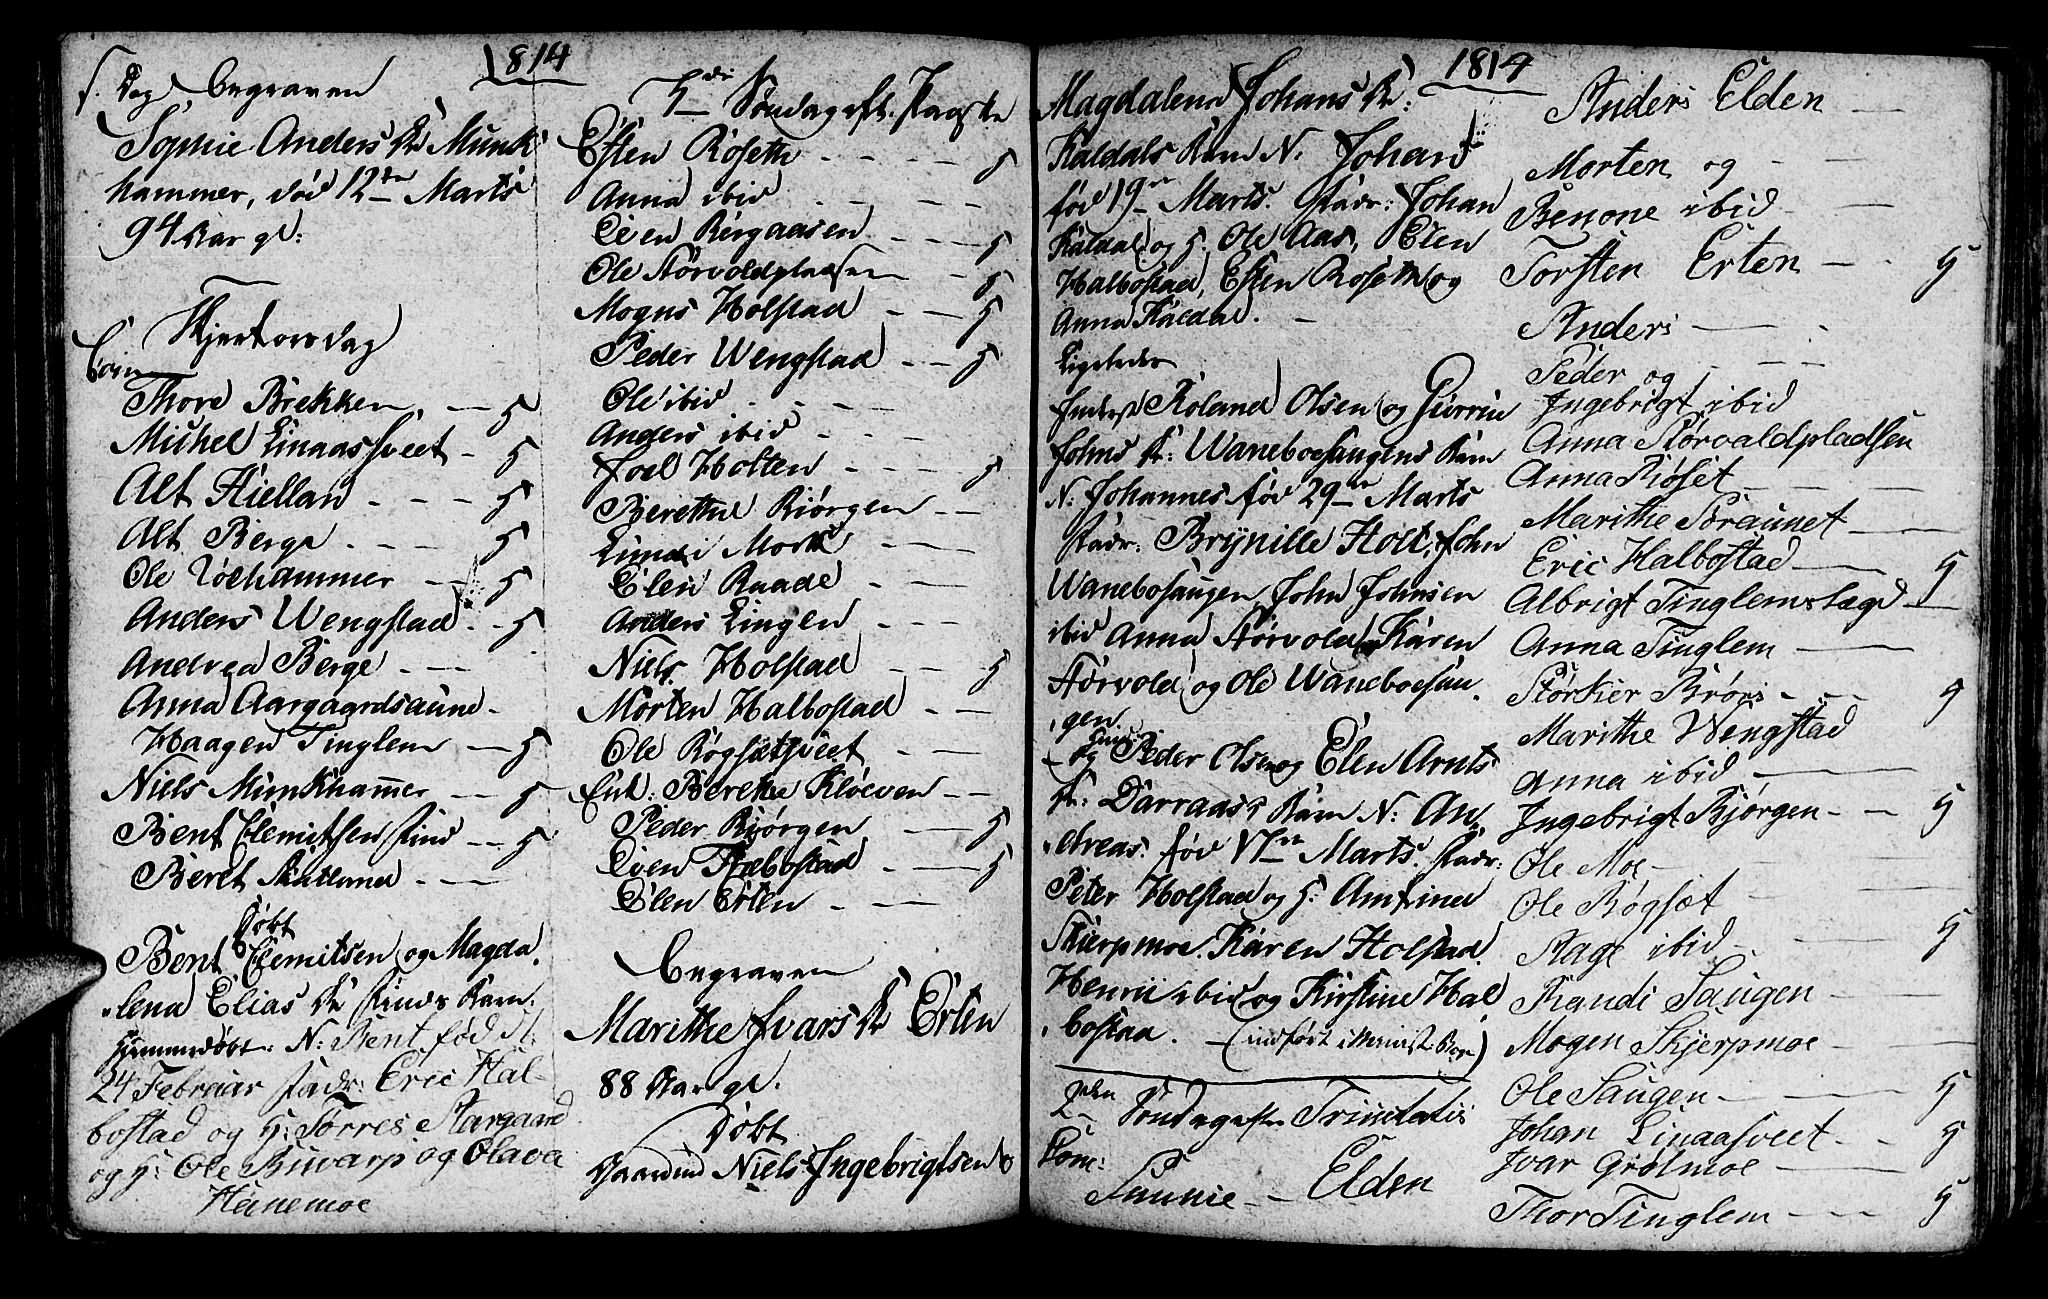 1814
S. Dag Begraven
Sophie Anders D Munk
hammer, død 12te Marts
94 Aar gl:
Skjertorsdag
Com
Thore Brekken
Michel Linaassveet
Alt Hiellan
Alt Berge
Ole Løchammer
Anders Wengstad
Andrea Berge
Anna Aargaardsaune
Haagen Tinglem
Niels Munkhammer
Bent Clemitsen
Beret
Døbt
Bent Clemitsen og Magda
lena Elias D Barn
Hjemmedøbt: N: Bent fød d:
24 Februar Fadr: Eric Hal-
bostad og H: Tørres Aargaard
og H: Ole Buvarp og Olava
Heinemoe
5te Søndag eft. Paaske
Esten Røseth 5
Anna ibid
Even Bergaasen 5
Ole Størvoldpladsen 5
Mogns Holstad 5
Peder Wengstad 5
Ole ibid
Anders ibid
Joel Holten 5
Berethe Biørgen
Mork
Elen Raade
Anders Lingen
Niels Holstad 5
Morten Halbostad
Ole Røgsætsveet
Enk: Berethe Kløeven
Peder Biørgen 5
Even Halbostad 5
Elen Erten
Begraven
Marithe Ivars D Erten
88 Aar gl.
Døbt
Gaardmd Niels Ingebrigtsen &
1814
Magdalena Johans D:
Kaldals Barn N. Johan
fød 19de Marts. Fadr: Johan
Kaldal og H: Ole Aas, Elen
Halbostad, Esten Roseth og
Anna Kaldal.
Ligeledes
Inderst Roland Olsen og Gurrin
Johns D: Waneboesaugens Barn
N: Johannes fød 29de Marts
Fadr: Brynille Holt, John
Wanebosaugen John Johnsen
ibid Anna Størvold Karen
Størvold og Ole Waneboesau
gen.
og Peder Olsen og Elen Arnts
D: Darraas Barn N: An
dreas. fød 17de Marts. Fadr:
Peter Holstad og H: Antrina
Skierpmoe. Karen Holstad.
Henric ibid og Kirstine Hal
bostad. (indført i Minist: Bogen)
2den Søndag efter Trinitatis
Com:
Gunnie Elden
Anders Elden
Morten og
Benone ibid
Torsten Erten 5
Anders
Peder og
Ingebrigt ibid
Anna Størvaldpladsen
Anna Røset
Marithe Søraunet
Eric Halbostad 5
Albrigt Tinglemslægd
Anna Tinglem
Størker Brørs 5
Marithe Wengstad
Anna ibid
Ingebrigt Bjørgen 5
Ole Moe
Ole Røgsæt
Aage ibid 5
Randi Saugen
Mogen Skjerpmoe
Ole Saugen 5
Johan Linaasveet 5
Ivar Grølmoe
Thor Tinglem 5